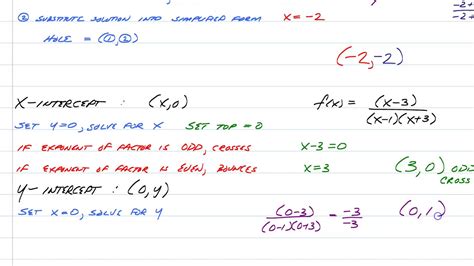 ② SUBSTITUTE SOLUTION INTO SIMPLIFIED FORM X = -2
-2+
-2+
HOLE = (①,②)
(-2,-2)
X-INTERCEPT : (X,0) f(x) = (x-3)/(x-1)(x+3)
SET Y=0, SOLVE FOR X SET TOP = 0
IF EXPONENT OF FACTOR IS ODD, CROSSES X-3=0
IF EXPONENT OF FACTOR IS EVEN, BOUNCES X=3 (3,0) ODD
CROSS
Y-INTERCEPT : (0,Y)
SET X=0, SOLVE FOR Y (0-3)/(0-1)(0+3) = -3/-3 (0,1)